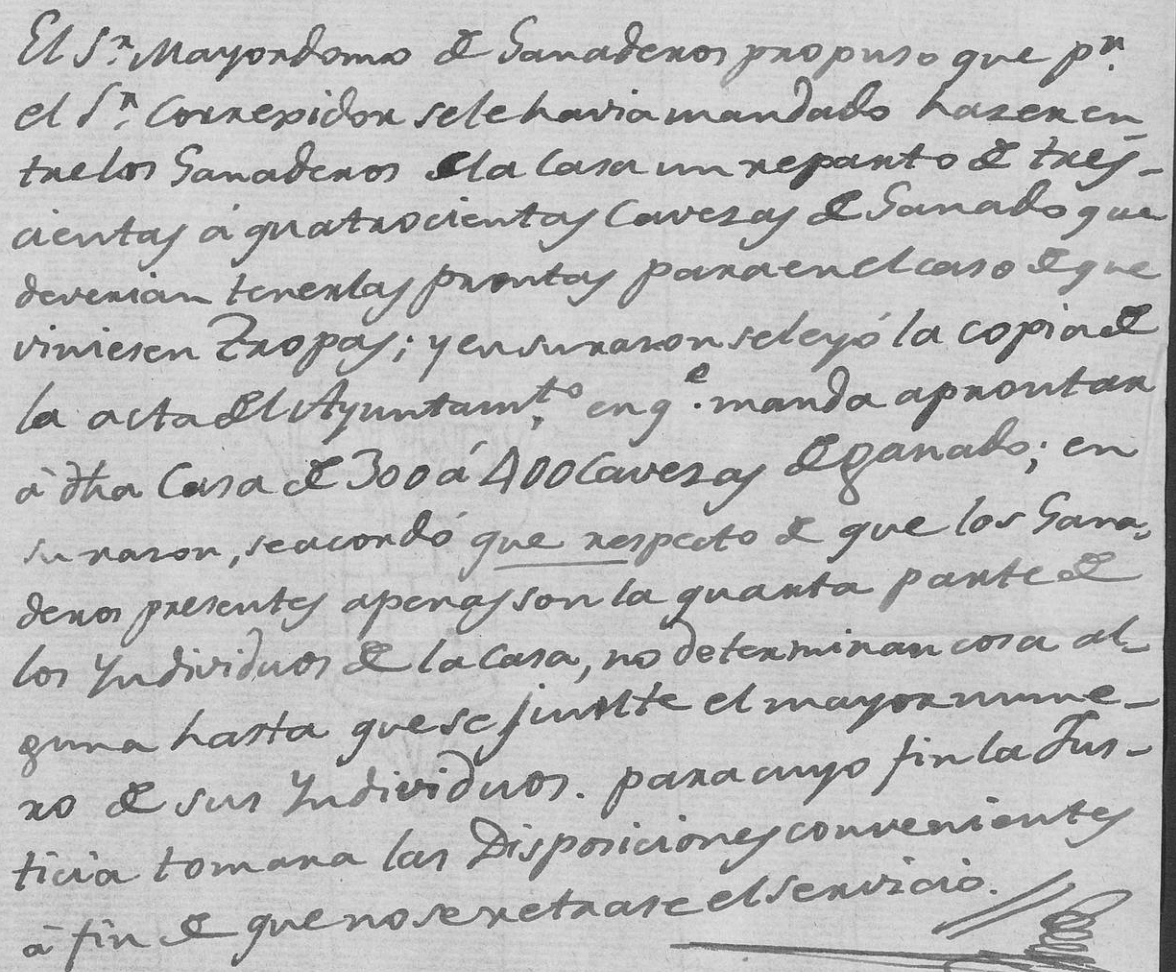 El Sr. Mayordomo de Ganaderos propuso que pr.
el Sr. Correxidor se le havia mandado hazer en-
tre los Ganaderos de la Casa un reparto de tres-
cientas á quatrocientas Cavezas de Ganado que
deverian tenerlas prontas para en el caso de que
viniesen Tropas; y en su razon se leyó la copia de
la acta del Ayuntamto. en qe. manda aprontar
à dha Casa de 300 á 400 Cavezas de ganado; en
su razon, se acordó que respecto de que los Gana-
deros presentes apenas son la quarta parte de
los Yndividuos de la Casa, no determinan cosa al-
guna hasta que se junte el mayor nume-
ro de sus Yndividuos. para cuyo fin la Jus-
ticia tomara las Disposiciones convenientes
à fin de que no se retrase el servicio.